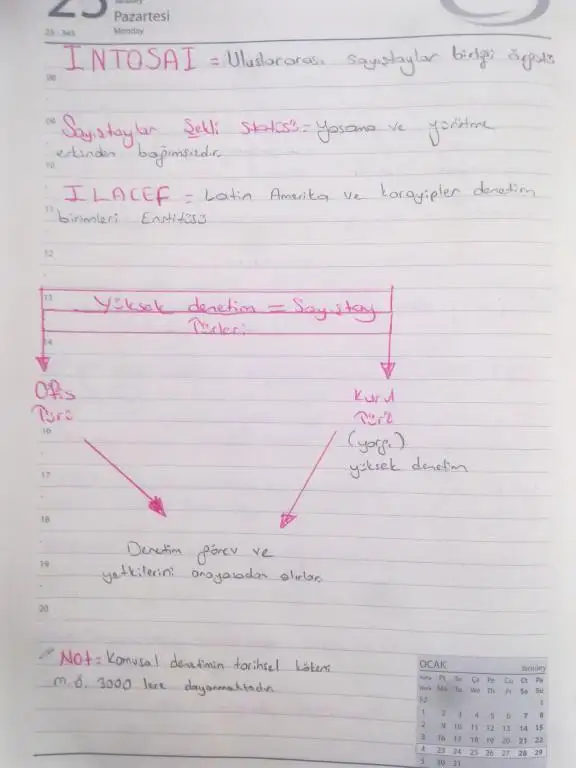 23 January
Pazartesi
Monday
INTOSAI = Uluslararası sayıştaylar birliği örgütü
Sayıştaylar Şekli Statüsü = Yasama ve yürütme
erkinden bağımsızdır.
ILACEF = Latin Amerika ve karayipler denetim
birimleri Enstitüsü
Yüksek denetim = Sayıştay
Türleri
Ofis
Türü
Kurul
Türü
(yargı)
yüksek denetim
Denetim görev ve
yetkilerini anayasadan alırlar.
Not = Kamusal denetimin tarihsel kökeni
m.ö. 3000 lere dayanmaktadır.
08
09
10
11
12
13
14
16
17
18
19
20
OCAK January
Pt Sa Ça Pe Cu Ct Pa
Mo Tu We Th Fr Sa Su
52 1
1 2 3 4 5 6 7 8
2 9 10 11 12 13 14 15
3 16 17 18 19 20 21 22
4 23 24 25 26 27 28 29
5 30 31